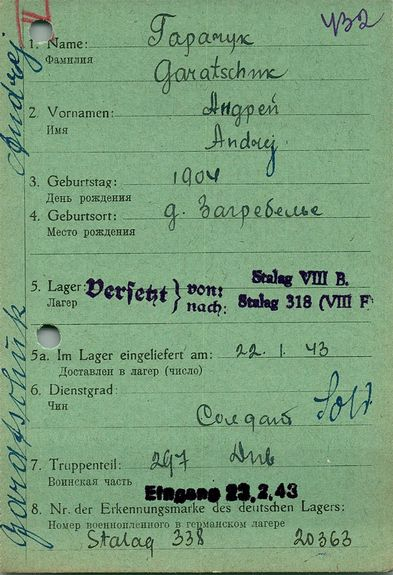 II
У32
1. Name: Гарачук
Фамилия Garatschuk
2. Vornamen: Андрей
Имя Andrej
3. Geburtstag: 1904
День рождения
4. Geburtsort: д. Загребелье
Место рождения
5. Lager: Versetzt } von: Stalag VIII B.
Лагер nach: Stalag 318 (VIII F
5a. Im Lager eingeliefert am: 22. 1. 43
Доставлен в лагер (число)
6. Dienstgrad:
Чин Солдат Sold
7. Truppenteil: 297
Воинская часть Eingang 23.2.43
8. Nr. der Erkennungsmarke des deutschen Lagers:
Номер военнопленного в германском лагере
Stalag 338 20363
Garatschuk Andrej